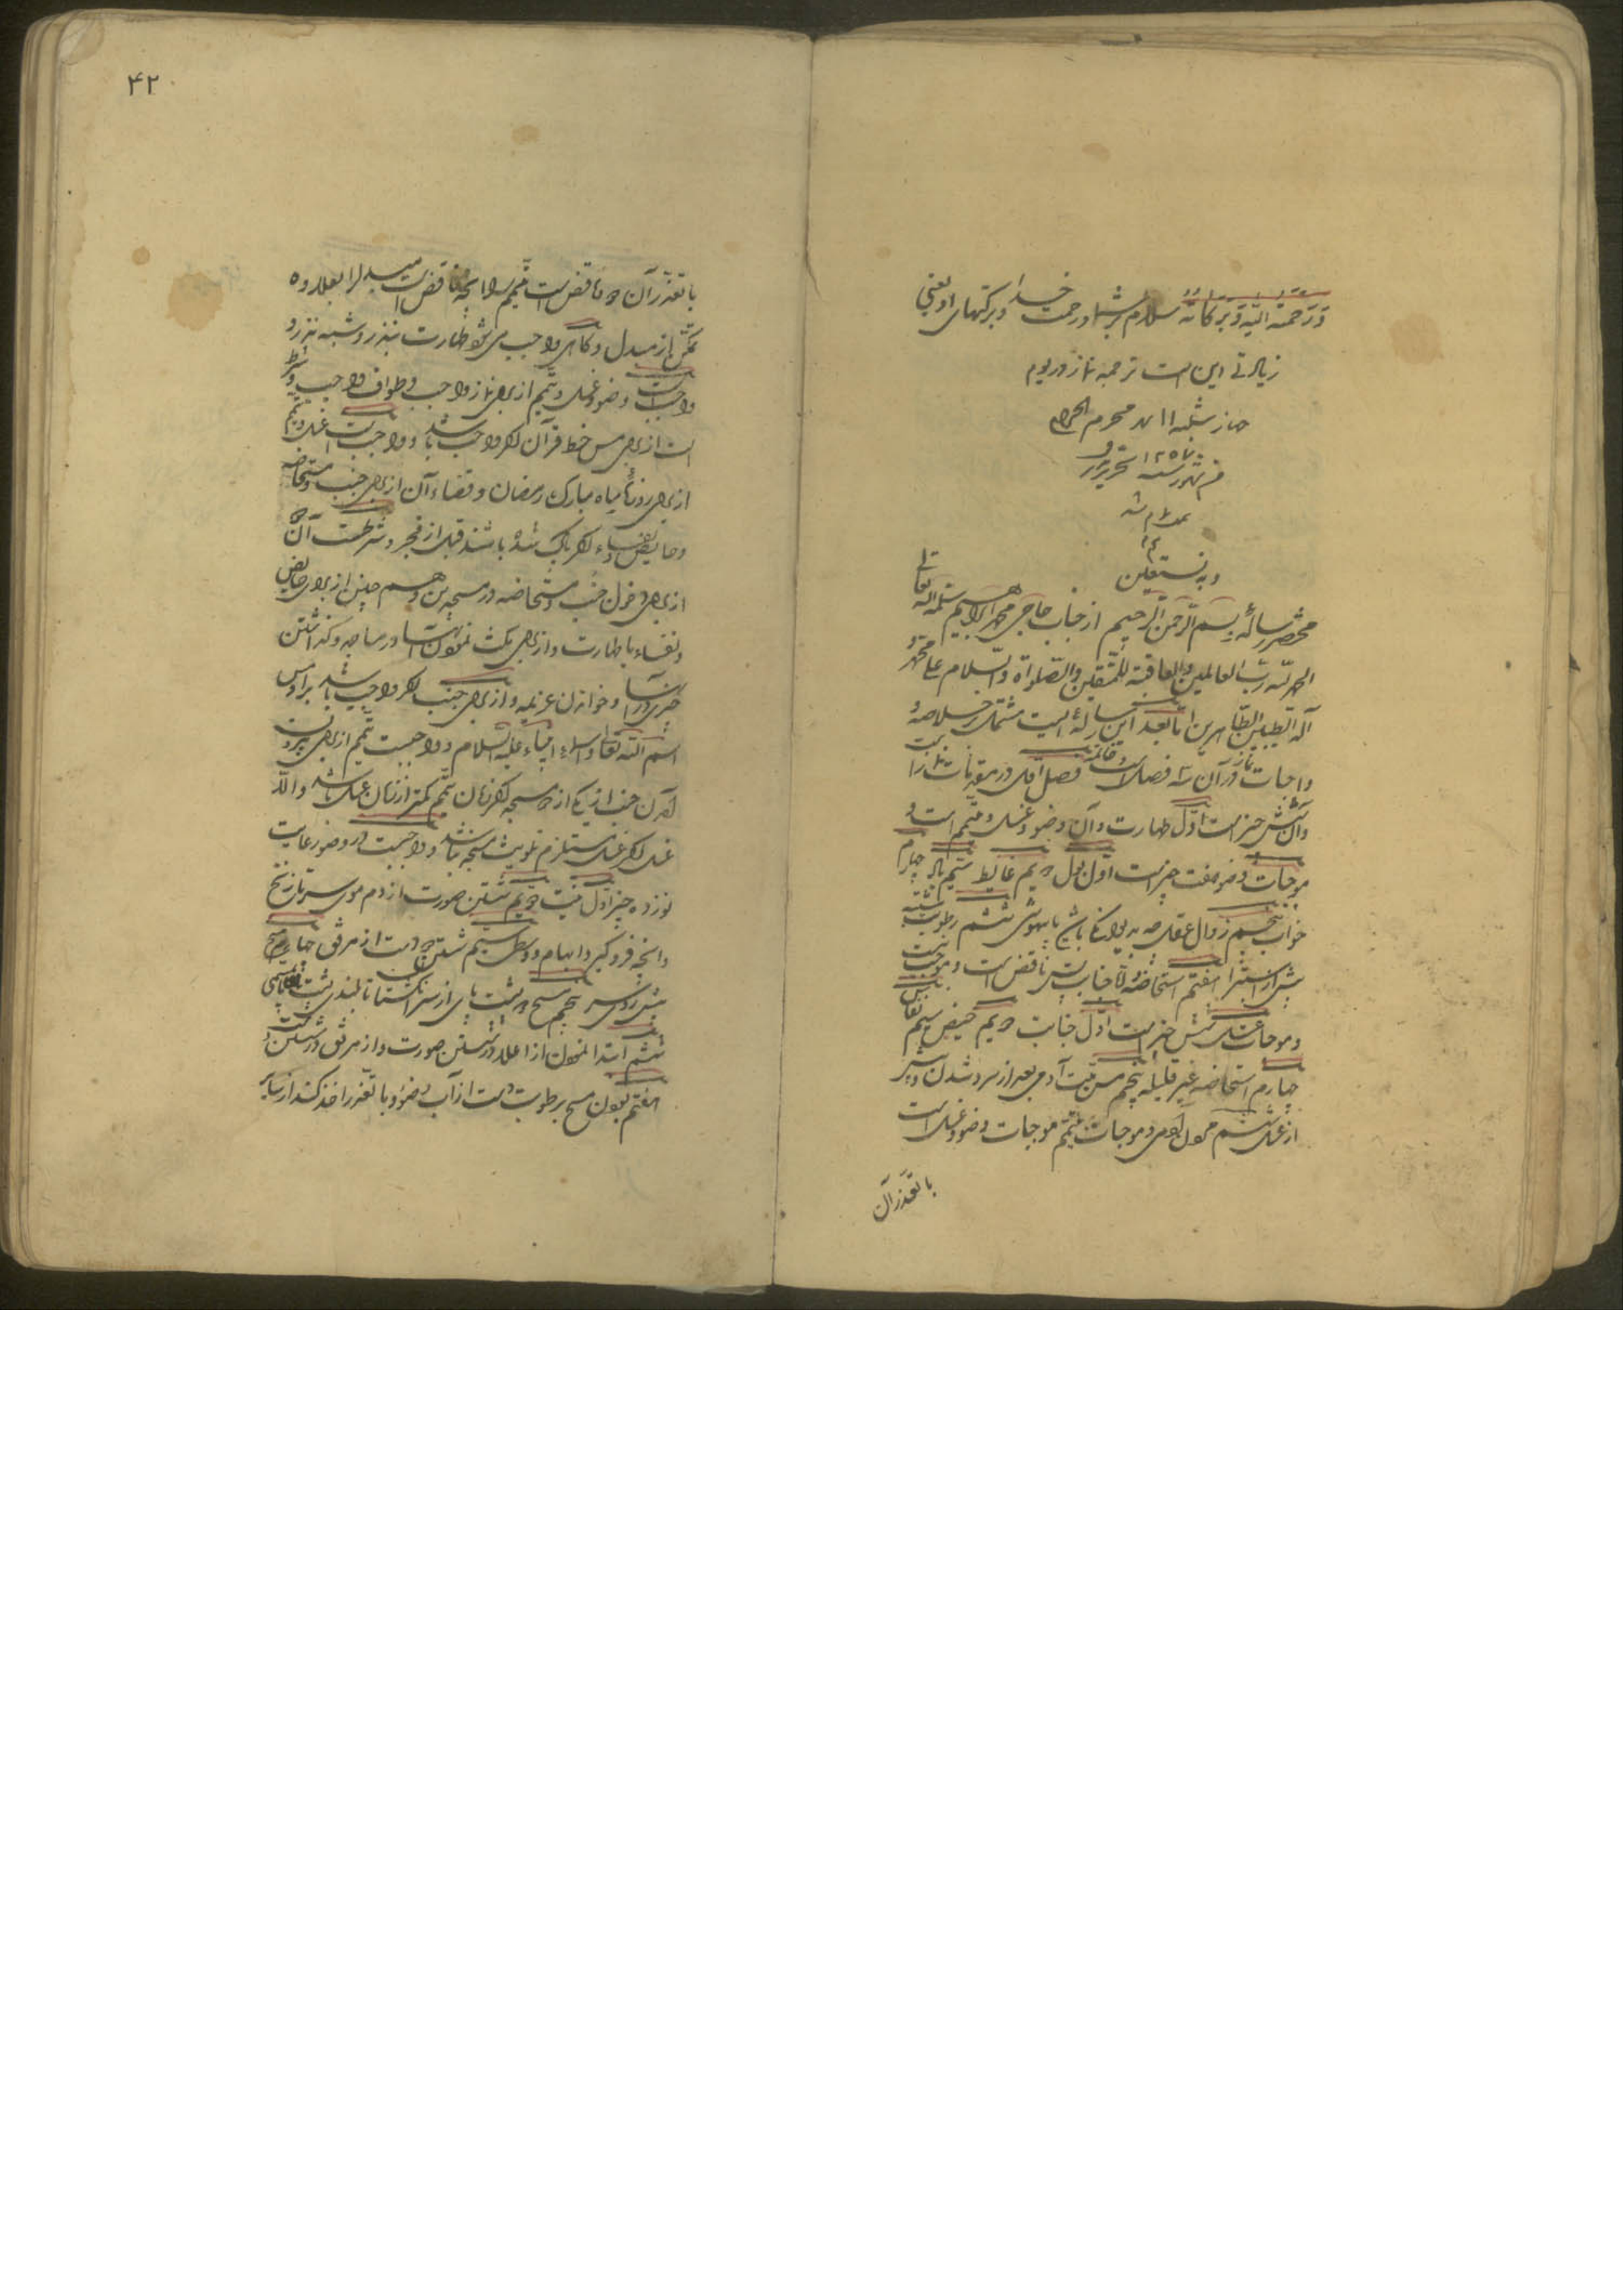 و رحمة الله و برکاته سلام بر شما و رحمت خدا و برکتهای او یعنی
زیادتی این است ترجمه نماز در یوم
چهار شنبه ۱۱ شهر محرم الحرام
من شهور سنه ۱۲۵۷ تحریر
تمام شد
و به نستعین
مختصر رساله بسم الله الرحمن الرحیم از جناب حاجی محمد ابراهیم سلمه الله تعالی
الحمد لله رب العالمین و العاقبة للمتقین و الصلواة و السلام علی محمد و
آله الطیبین الطاهرین اما بعد این رساله ایست مشتمل بر خلاصه
واجبات نماز و در آن سه فصل است و خاتمه فصل اول در مقدمات نماز
و آن شش چیز است اول طهارت و آن وضو و غسل و تیمم است و
موجبات وضو هفت چیز است اول بول دویم غایط سیم باد چهارم
خواب پنجم زوال عقل چه بدیوانگی باشد یا بیهوشی ششم رطوبت مشتبه
پیش از استبرا هفتم استحاضه و اما جنابت پس ناقض است و موجب نیست
و موجبات غسل شش چیز است اول جنابت دویم حیض سیم نفاس
چهارم استحاضه غیر قلیله پنجم مس میت آدمی بعد از سرد شدن و پیش
از غسل ششم موت آدمی و موجبات تیمم موجبات وضو و غسل است
با تعذر آن
۴۲
با تعذر آن و ناقض است تیمم را آنچه ناقض است مبدل را بعلاوه
تمکن از مبدل و گاهی واجب می شود طهارت بنذر و شبه نذر و
واجب است وضو و غسل و تیمم از برای نماز واجب و طواف واجب و شرط
است از برای مس خط قرآن اگر واجب باشد و واجب است غسل و تیمم
از برای روزهٔ ماه مبارک رمضان و قضاء آن از برای جنب و مستحاضه
و حایض و نفساء اگر پاک شده باشند قبل از فجر و شرط است آن
از برای دخول جنب و مستحاضه در مسجدین و هم چنین از برای حایض
و نفساء با طهارت و از برای مکث نمودن اینها در مساجد و گذاشتن
چیزی در آنها و خواندن عزیمه و از برای جنب اگر واجب باشد بر او مس
اسم الله تعالی و اسماء انبیاء علیه السلام و واجبست تیمم از برای بیرون
آمدن جنب از یکی از دو مسجد اگر زمان تیمم کمتر از زمان غسل باشد و الا
غسل اگر غسل مستلزم تلویث مسجد نباشد و واجبست در وضو رعایت
نوزده چیز اول نیت دویم شستن صورت از دم موی سر تا زنخ
و آنچه فرو گیرد ابهام و وسطی سیم شستن دو دست از مرفق چهارم مسح
پیش روی سر پنجم مسح دو پشت پای از سر انگشتها تا بلندی پشت پا
ششم ابتدا نمودن از اعلا در شستن صورت و از مرفق در شستن دست
هفتم بودن مسح برطوبت دست از آب وضو و با تعذر اخذ کند از سایر